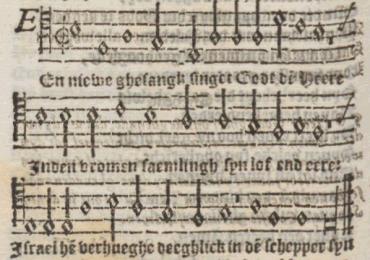 E
En niewe ghesangk singet Godt dē Heere
Inden vromen saemlingh syn lof end eere:
Israel hē verhueghe deeghlick in dē schepper syn